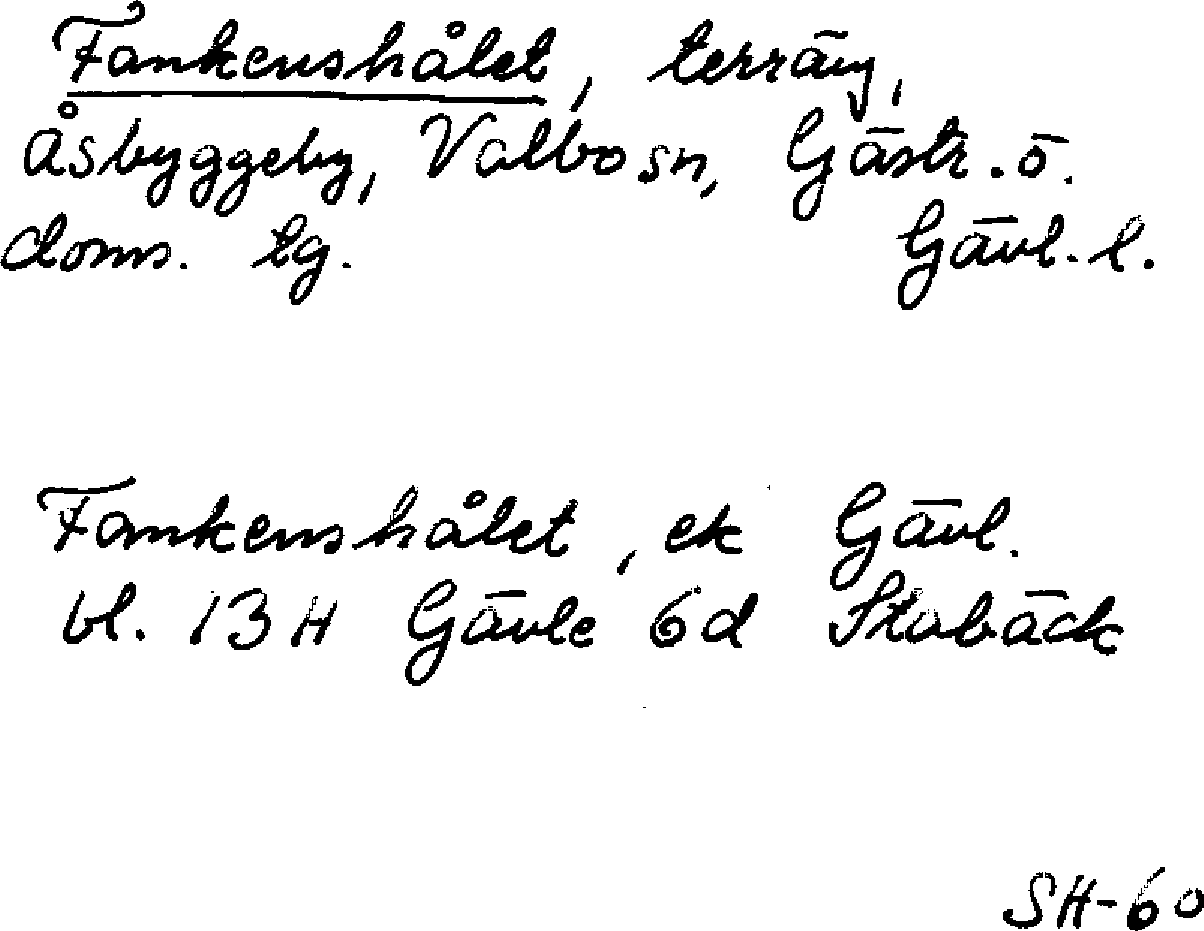 Fankenshålet, terräng,
Åsbyggeby, Valbo sn, Gästr. ö.
doms. tg. Gävl. l.
Fankenshålet, ek Gävl.
bl. 13 H Gävle 6d Stabäck
SH-60